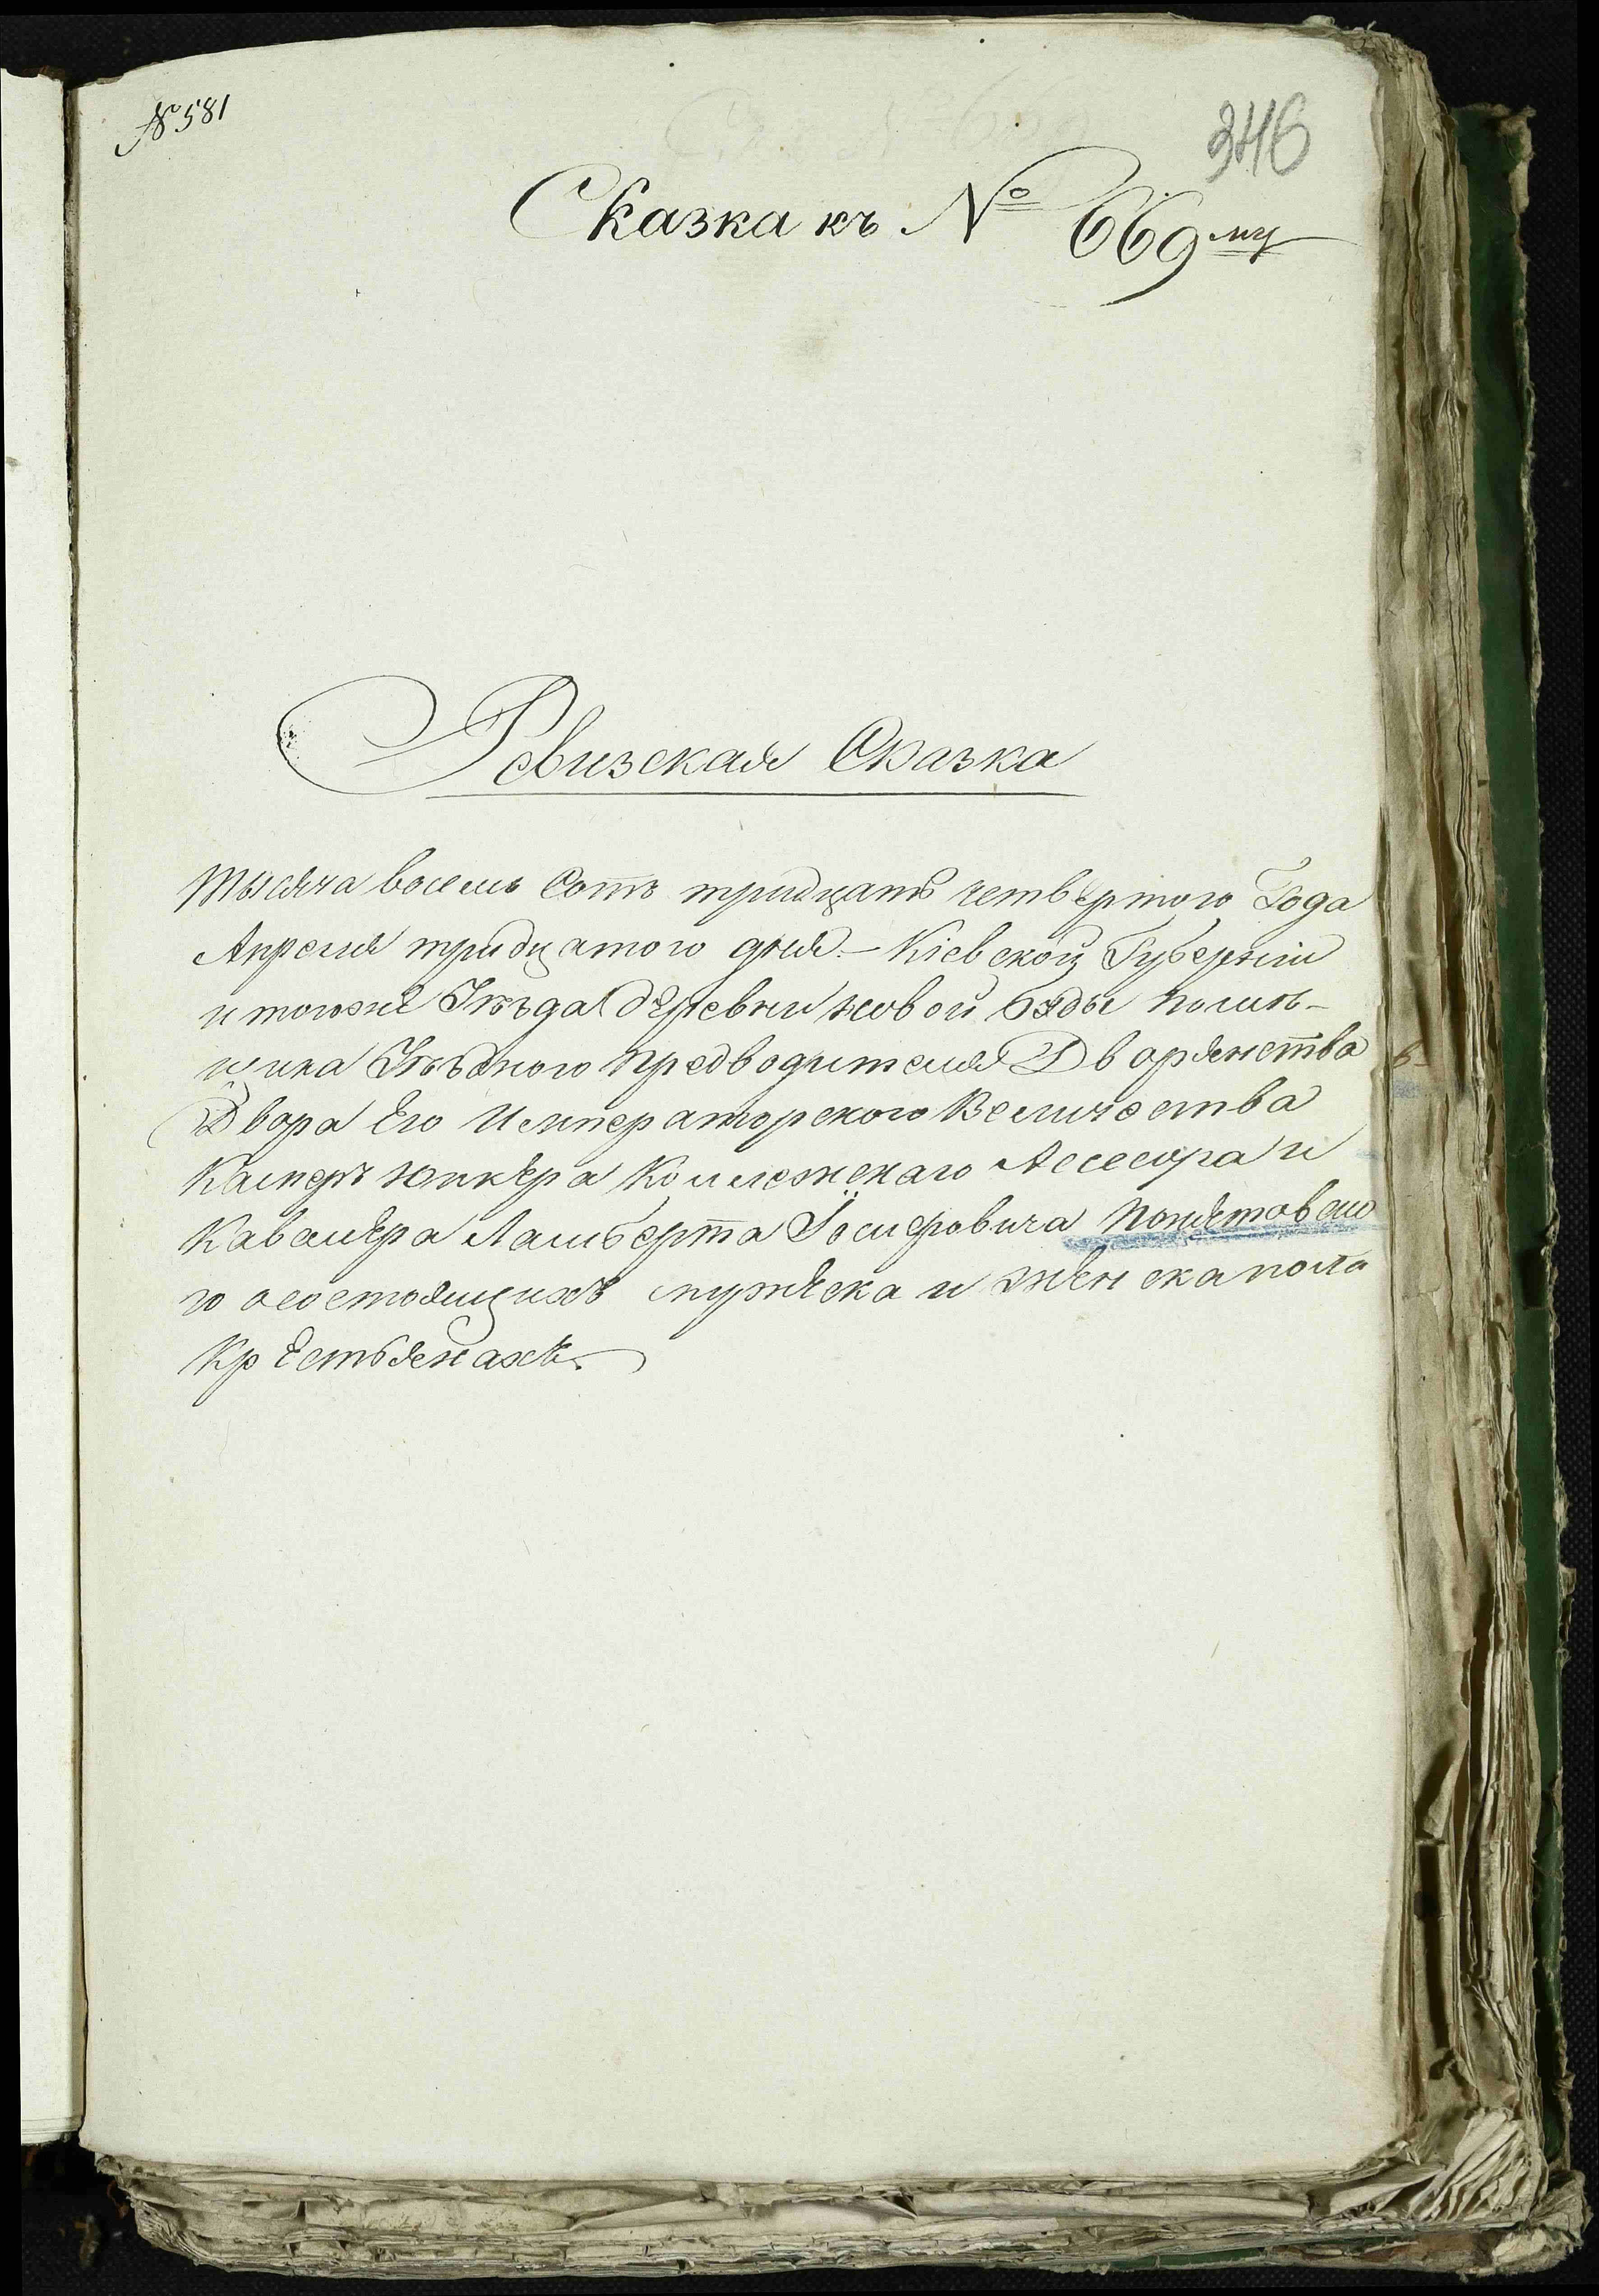 № 581
346
Сказка къ № 669му
Ревизская Сказка
Тысяча восемь Сотъ тридцать четвертого Года
Апреля тридцатого дня – Кіевской Губерніи
и тогоже Уѣзда деревни новой буды помѣ-
щика Уѣзднаго предводителя Дворянства
Двора Его Императорского Величества
Камеръ юнкера Коллежскаго Ассесора и
Кавалера Ламберта Іосифовича Понятовско
го осостоящихъ мужеска и женска пола
Крестьянахъ.